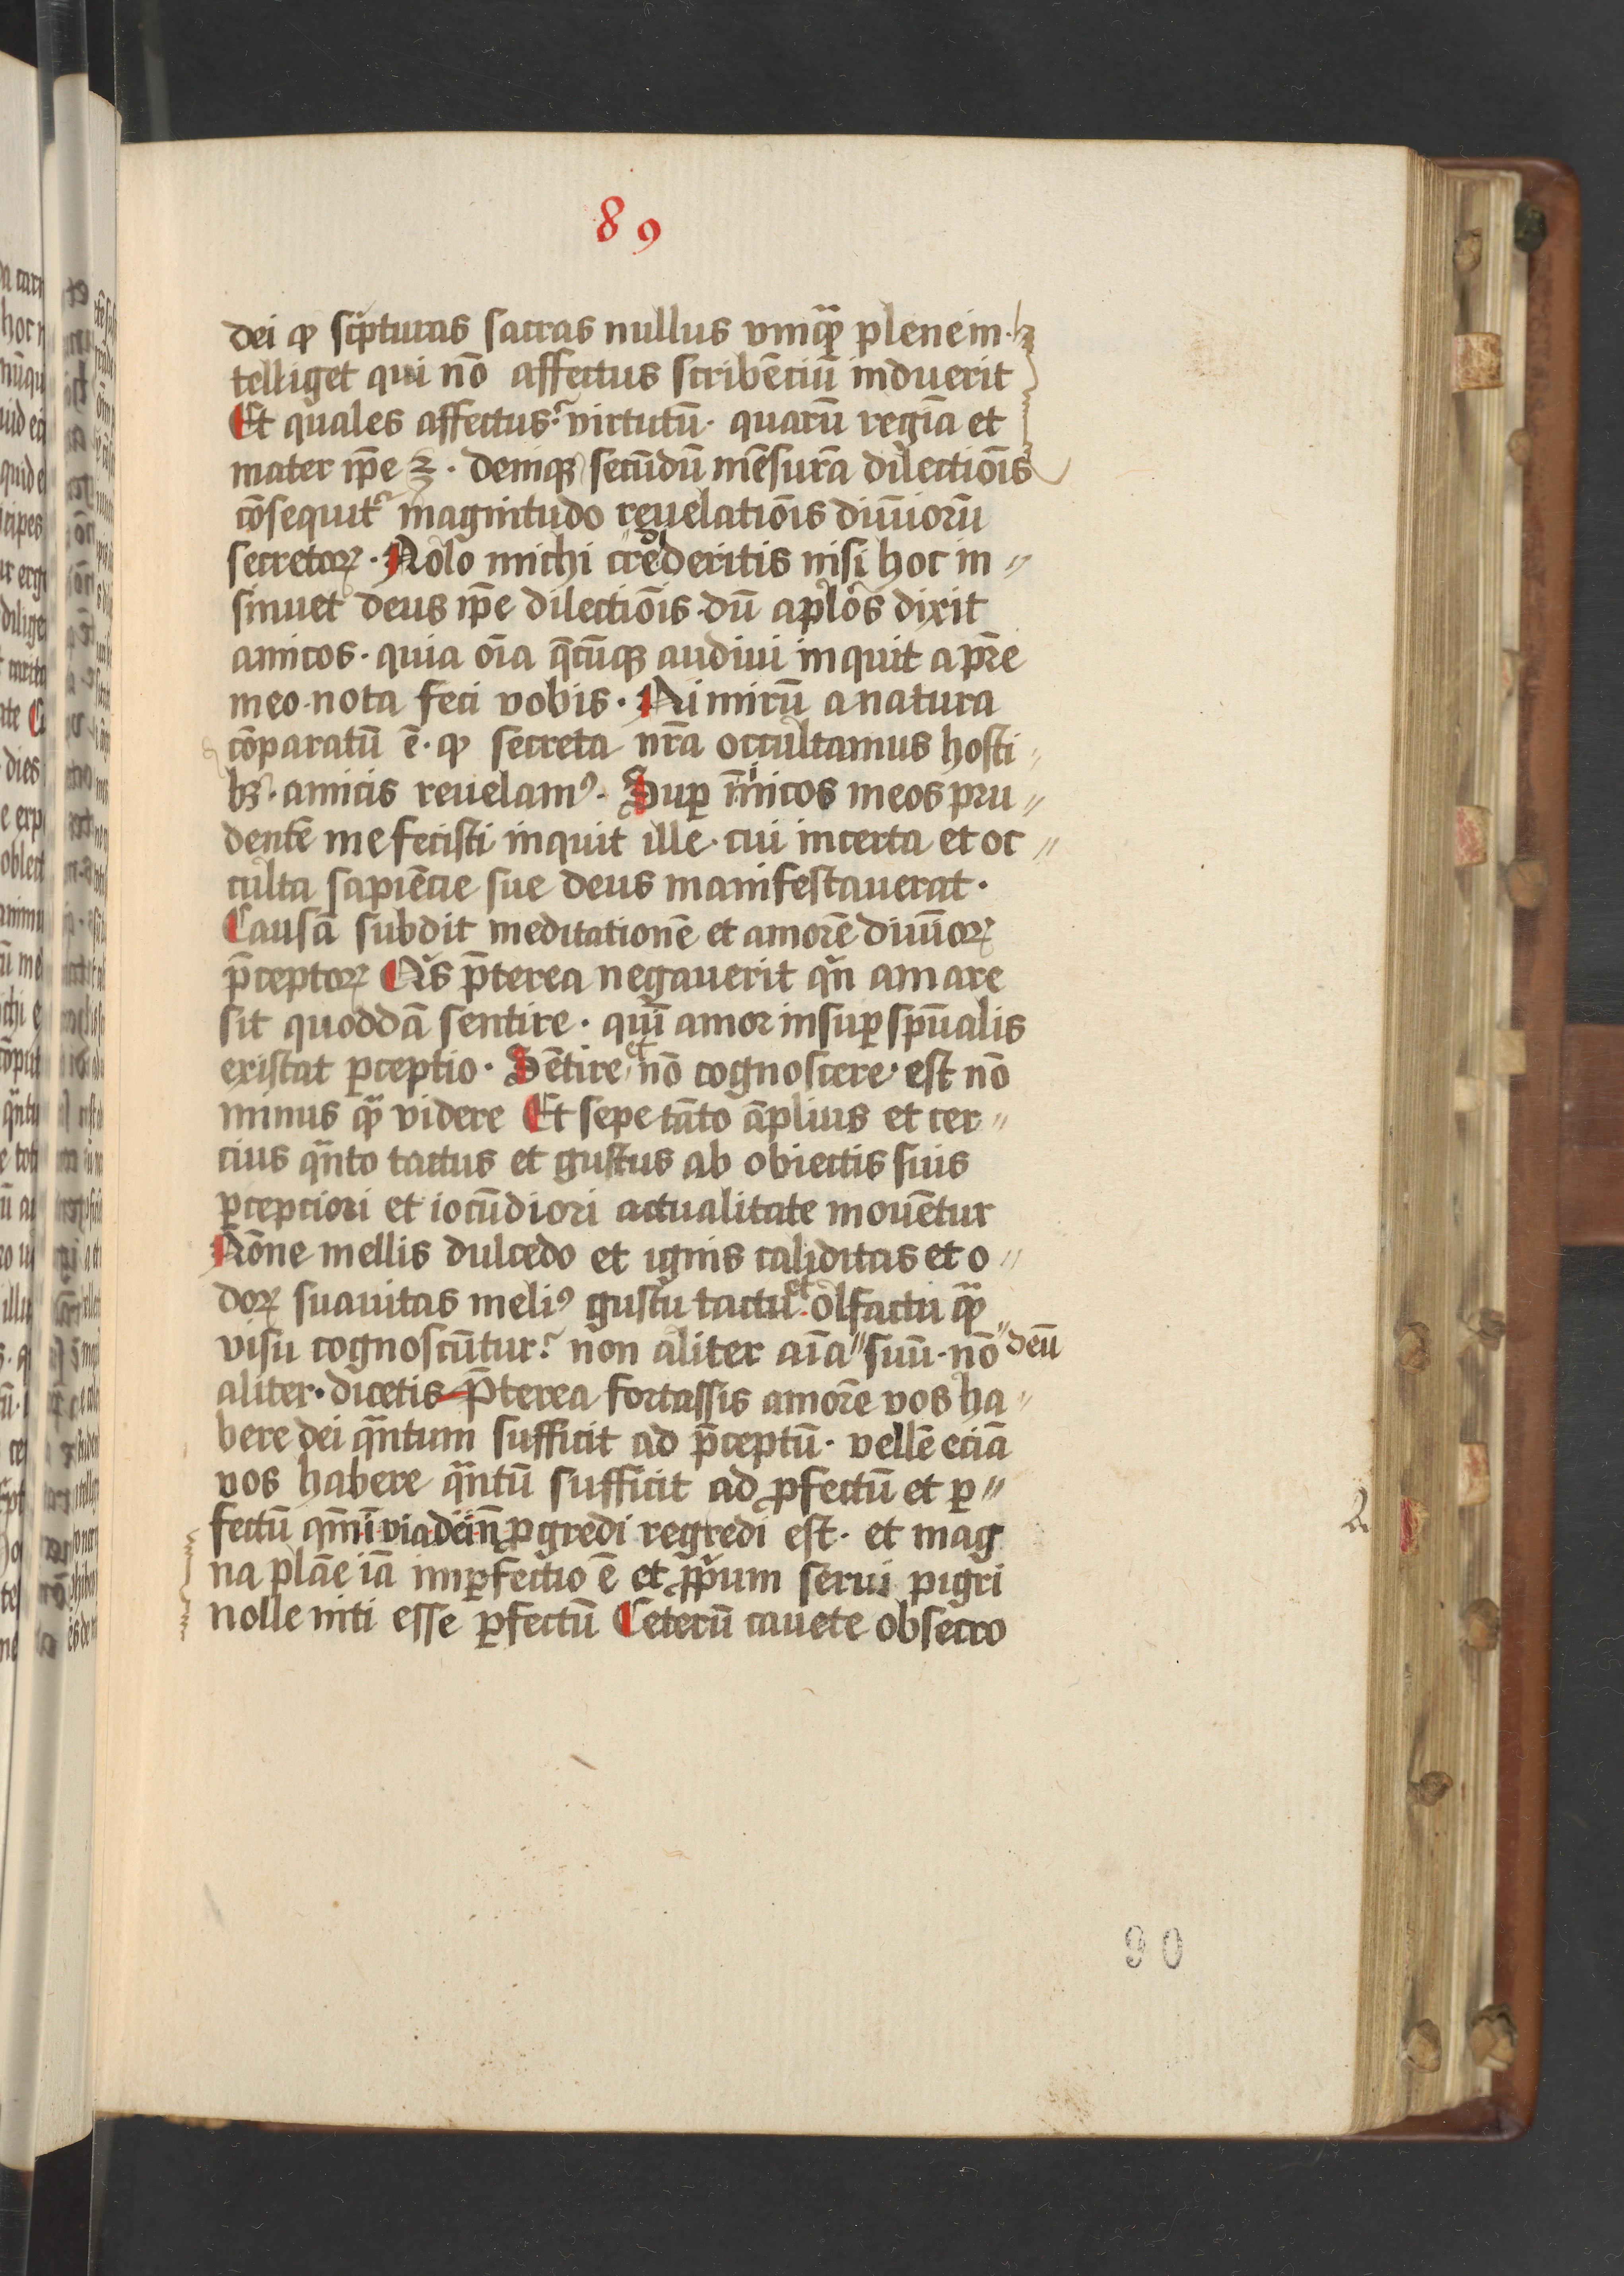 89
dei ꝙ sc̓pturas sacras nullus vmqᷓꝫ plene in
telliget qui nō affectus scribēciū induerit
Et quales affectus? virtutū· quarū regīa et
mater ip̄e ꝫ· deniqꝫ secūdū mēsurā dilectiōis
cōsequit᷑ magnitudo reuelatiōis diuīorū
secretoꝝ· Nolo michi credideritis nisi hoc in
sinuet deus ip̄e dilectiōis dū apl̓os dixit
amicos· quia oīa q̄cūqꝫ audiui inquit a pr̄e
meo nota feci vobis· Ni mirū a natura
cōparatū ē· ꝙ secreta nr̄a occultamus hosti
bꝫ· amicis reuelamꝰ· Suꝑ inīicos meos pru
dentē me fecisti inquit ille· cui incerta et oc
culta sapiēcie sue deus manifestauerat·
Causā subdit meditationē et amorē diuīoꝝ
p̄ceptoꝝ Qͥs p̄terea negauerit qn̄ amare
sit quoddā sentire· quī amor insuꝑ sp̄ualis
existat ꝑceptio· Sētire et nō cognoscere est nō
minus qᷓꝫ videre Et sepe tāto āplius et cer
cius qᷓnto tactus et gustus ab obiectis suis
ꝑcepciori et iocūdiori actualitate mouētur
Nōne mellis dulcedo et ignis caliditas et o
doꝝ suauitas meliꝰ gustu tactu et olfactu qᷓꝫ
visu cognoscūtur? non aliter aīa suū· nō deū
aliter· dicetis p̄terea fortassis amorē vos ha
bere dei qᷓntum sufficit ad p̄ceptū· vellē eciā
vos habere qᷓntū sufficit ad ꝓfectū et ꝑ
fectū qm̄ ī via dei nō ꝓgredi regredi est· et mag
na plāe iā imꝑfectio ē et ꝓpͥum serui pigri
nolle niti esse ꝑfectū Ceterū cauete obsecro
90